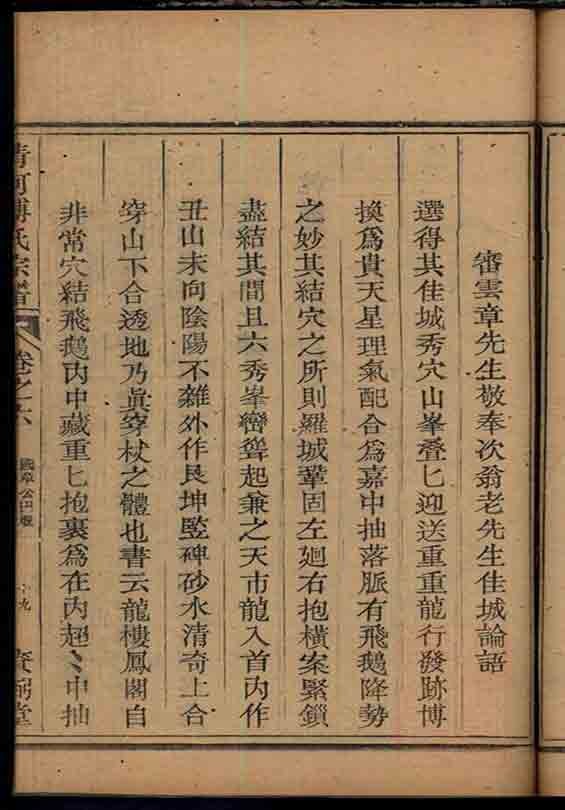 審雲章先生敬奉次翁老先生佳城論語
選得其佳城秀穴山峯疊匕迎送重重龍行發跡博
換爲貴天星理氣配合爲嘉中抽落脈有飛鵝降勢
之妙其結穴之所則羅城鞏固左廻右抱橫案緊鎖
盡結其間且六秀峯巒聳起兼之天市龍入首內作
丑山未向陰陽不雜外作艮坤竪碑砂水清奇上合
穿山下合透地乃眞穿杖之體也書云龍樓鳳閣自
非常穴結飛鵝內中藏重匕抱裏爲在內起〻中抽
清河傅氏宗譜
卷之六
十九